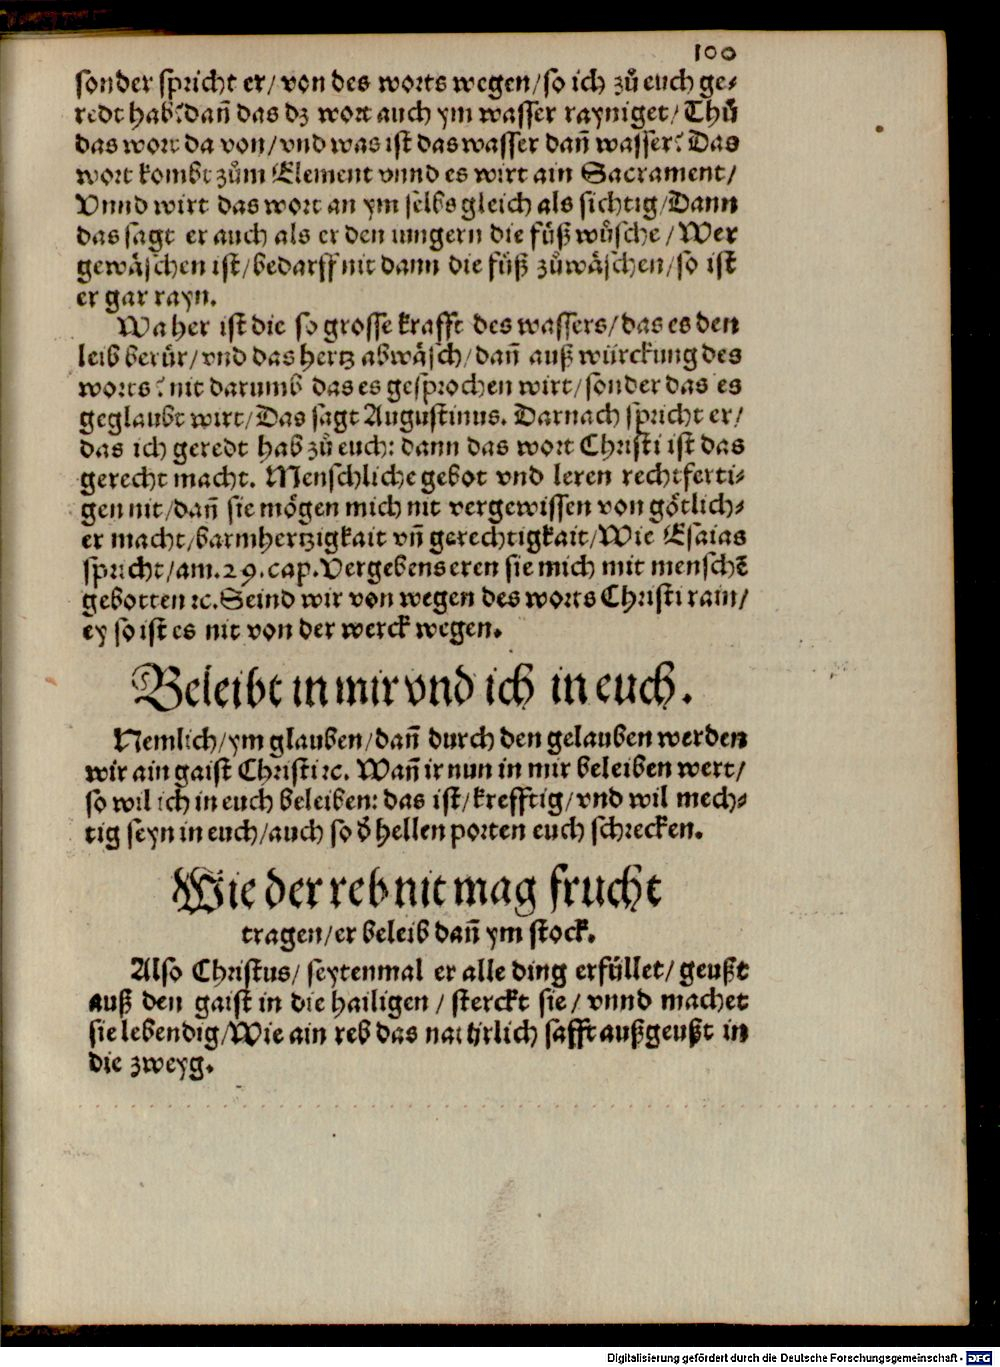 100
sonder spricht er/ von des worts wegen/so ich zů euch ge⸗
redt hab? dañ das dz wort auch ym wasser rayniget/ Thů
das wort da von/vnd was ist das wasser dañ wasser? Das
wort kombt zům Element vnnd es wirt ain Sacrament/
Vnnd wirt das wort an ym selbs gleich als sichtig/Dann
das sagt er auch als er den iungern die füß wůsche/Wer
gewäschen ist/bedarff nit dann die füß zůwäschen/so ist
er gar rayn.
Wa her ist die so grosse krafft des wassers/das es den
leib berür/vnd das hertz abwäsch/dañ auß würckung des
worts? nit darumb das es gesprochen wirt/sonder das es
geglaubt wirt/Das sagt Augustinus. Darnach spricht er/
das ich geredt hab zů euch: dann das wort Christi ist das
gerecht macht. Menschliche gebot vnd leren rechtferti⸗
gen nit/dañ sie mögen mich nit vergewissen von götlich⸗
er macht/barmhertzigkait vñ gerechtigkait/Wie Esaias
spricht/am.29.cap.Vergebens eren sie mich mit menschẽ
gebotten ꝛc.Seind wir von wegen des worts Christi rain/
ey so ist es nit von der werck wegen.
Beleibt in mir vnd ich in euch.
Nemlich/ym glauben/dañ durch den gelauben werden
wir ain gaist Christi ꝛc. Wañ ir nun in mir beleiben wert/
so wil ich in euch beleiben: das ist/krefftig/vnd wil mech⸗
tig seyn in euch/auch so d̕ hellen porten euch schrecken.
Wie der reb nit mag frucht
tragen/er beleib dañ ym stock.
Also Christus/ seytenmal er alle ding erfüllet/geußt
auß den gaist in die hailigen/sterckt sie/vnnd machet
sie lebendig/Wie ain reb das natürlich safft außgeußt in
die zweyg.
Digitalisierung gefördert durch die Deutsche Forschungsgemeinschaft - DFG